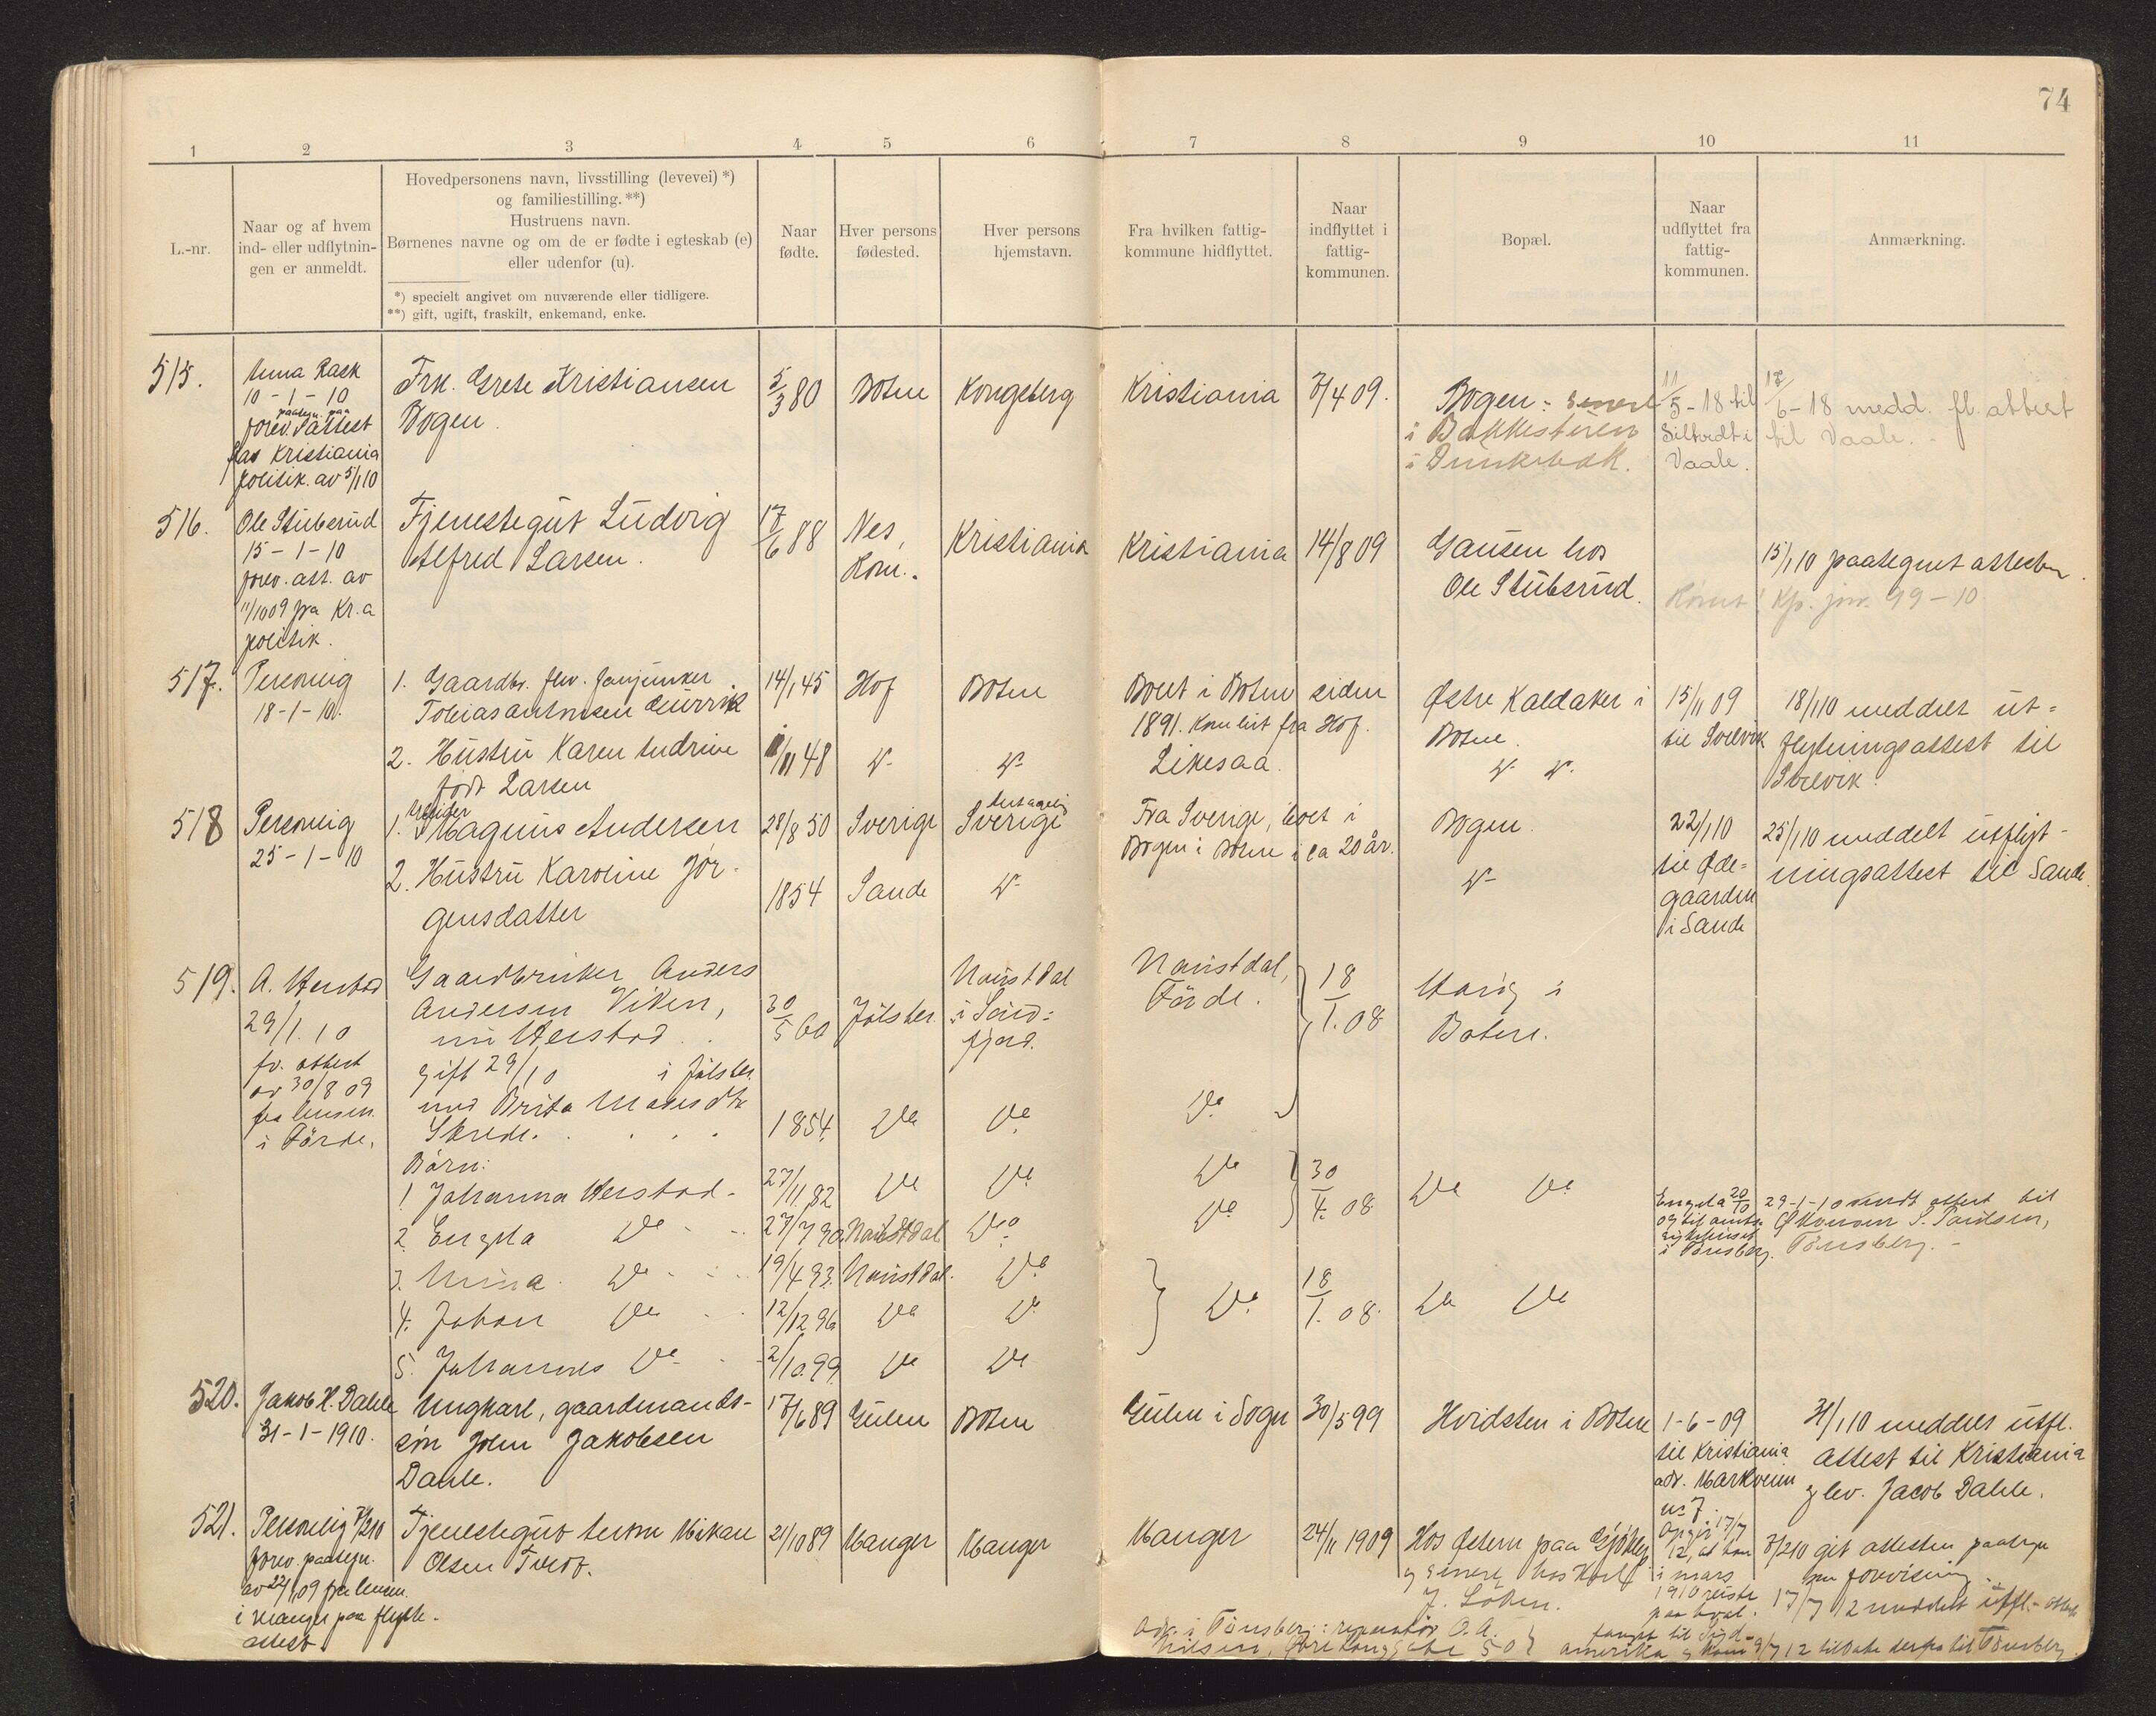 74
1 2 3 4 5 6 7 8 9 10 11
L.-nr.
Naar og af hvem
ind- eller udflytnin-
gen er anmeldt.
Hovedpersonens navn, livsstilling (levevei) *)
og familiestilling. **)
Hustruens navn.
Børnenes navne og om de er fødte i egteskab (e)
eller udenfor (u).
*) specielt angivet om nuværende eller tidligere.
**) gift, ugift, fraskilt, enkemand, enke.
Naar
fødte.
Hver persons
fødested.
Hver persons
hjemstavn.
Fra hvilken fattig-
kommune hidflyttet.
Naar
indflyttet i
fattig-
kommunen.
Bopæl.
Naar
udflyttet fra
fattig-
kommunen.
Anmærkning.
515.
Rask
10-1-10
paategn. paa
forev. attest
fra Kristiania
politik. av 5/1 10
Frk. Grete Kristiansen
Bogen
5/3 80
Botne
Kongsberg
Kristiania
/4 09.
Bogen: senere
i
i
11/5-18 til
i
Vaale.
/6-18 medd. fl. attest
til Vaale.
516.
Ole Stubsrud
15-1-10
forev. att. av
11/10 09 fra Kr.a
politik.
Tjenestegut Ludvig
Alfred Larsen.
17/6 88
Nes,
Rom.
Kristiania
Kristiania
14/8 09
Gausen hos
Ole Stubsrud.
15/1 10 paategnet attesten.
Kp. jnr. 99-10
517.
Personlig
18-1-10.
1. Gaardbr. fhv. fanejunker
Tobias Antonsen
14/1 45
Hof
Botne
Boet i Botne siden
1891. Kom hit fra Hof.
Østre Kaldaker i
Botne.
15/11 09
til Svelvik
18/1 10 meddelt ut-
flytningsattest til
Svelvik.
2. Hustru Karen Andrine
født Larsen
/11 48
Likesaa
518
Personlig
25-1-10
1. Magnus Andersen
28/8 50
Sverige
antagelig
Sverige
Fra Sverige, boet i
Bogen i Botne i ca 20 år.
Bogen.
22/1 10
til Øde-
gaarden
i Sande
25/1 10 meddelt utflyt-
ningsattest til Sande.
2. Hustru Karoline Jør-
gensdatter
1854
Sande
519.
A. Herstad
29/1.10
fr. attest
av 30/8 09
fra lensm.
i Førde.
Gaardbruker Anders
Andersen Viken,
nu Herstad
gift 29/10 i Jølster
med Brita Madsdtr
Skrede.
30/5 60
Jølster.
Naustdal
i Sønd-
fjord.
Naustdal,
Førde.
18/1. 08
i
Botne.
1854.
Do
Do
Do
Børn:
1 Johanna Herstad
27/11.82
Do
Do
Do
30/4. 08
Do Do
2. Engela Do
27/7 90
Naustdal
Do
Do
Engela 20/10
i Tønsberg.
29-1-10 medt attest til
Økonom S. Paulsen,
Tønsberg.
3. Do
19/4 93.
Naustdal.
Do
4. Johan Do
12/12 96
Do
Do
Do
18/1. 08.
Do Do
5. Johannes Do
2/10.99.
Do
Do
520.
Jakob H. Dahle
31-1-1910.
Ungkarl, gaardmands-
søn John Jakobsen
Dahle.
17/6 89
Gulen
Botne
Gulen i Sogn
30/5 99
Hvidsten i Botne
1-6-09
til Kristiania
adr. Markveien
no 7.
31/1 10 meddelt utfl.
attest til Kristiania
lev. Jacob Dahle.
521.
Personlig /2 10
forev. paategn.
av 22/11 09 fra lensm.
i Manger paa flytte-
attest
Tjenestegut Anton Mikael
Olsen
21/10 89
Manger
Manger
Manger
24/11 1909
Hos paa
J.
Opgir 17/7
12, at han
i mars
1910 reiste
paa hval-
fangst til Syd-
amerika og kom 9/7 12 tilbake derfra til Tønsberg
/2 10 git attesten paategn
om forevisning.
17/7 12 meddelt utfl.-attest
Adr. i Tønsberg: reparatør O. A.
Nilsen, Øvre Langgate 50